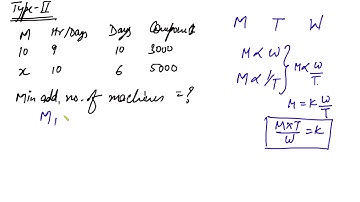 Type-II
M Hr/Days Days Component
10 9 10 3000
x 10 6 5000
Min add. no. of machines = ?
M,
M T W
M ∝ W
M ∝ 1/T } M ∝ W/T
M = K W/T
M×T/W = K